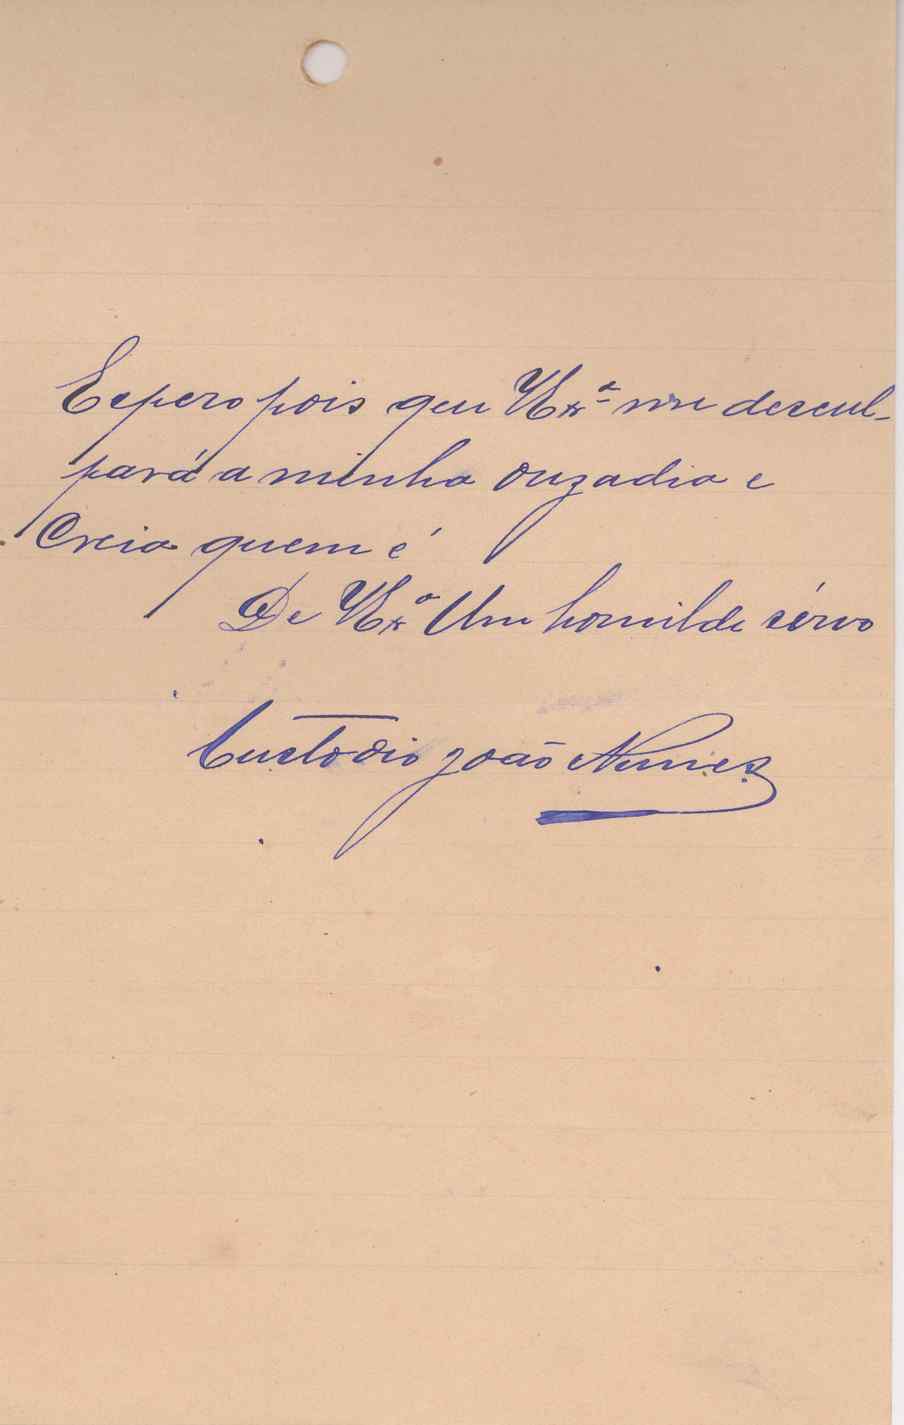 Espero pois que V Exª me descul-
pará a minha ouzadia e
Creia quem é
De V Exª Um homilde sérvo
Custodio João Nunes